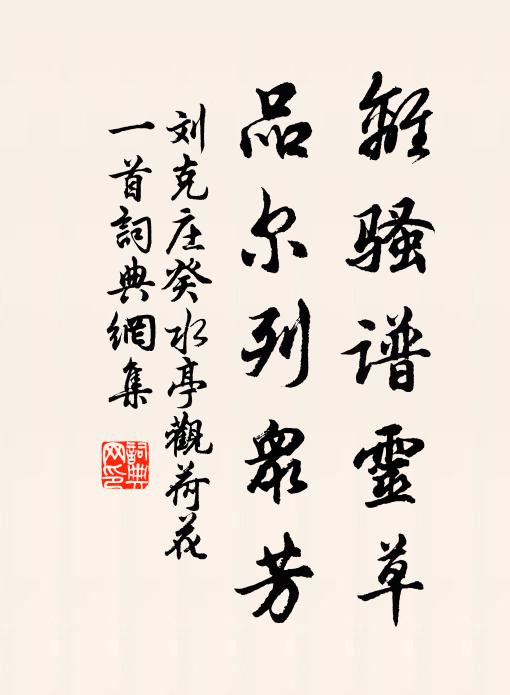 離骚谱靈草
品尔列眾芳
刘克庄癸水亭觀荷花
一首詞典網集
詞典网印